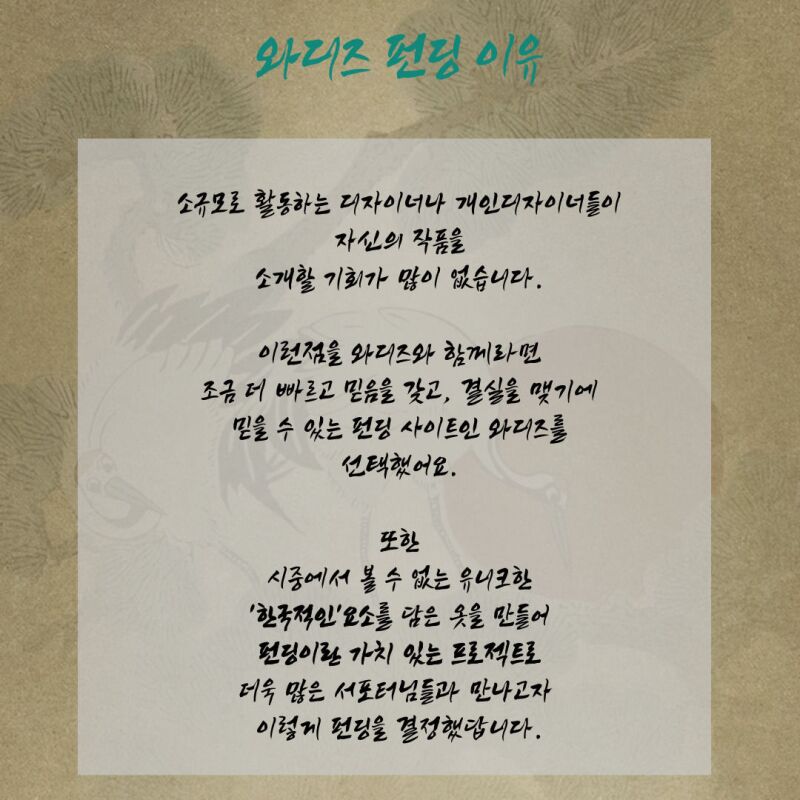 와디즈 펀딩 이유
소규모로 활동하는 디자이너나 개인디자이너들이
자신의 작품을
소개할 기회가 많이 없습니다.
이런점을 와디즈와 함께라면
조금 더 빠르고 믿음을 갖고, 결실을 맺기에
믿을 수 있는 펀딩 사이트인 와디즈를
선택했어요.
또한
시중에서 볼 수 없는 유니크한
'한국적인'요소를 담은 옷을 만들어
펀딩이란 가치 있는 프로젝트로
더욱 많은 서포터님들과 만나고자
이렇게 펀딩을 결정했답니다.